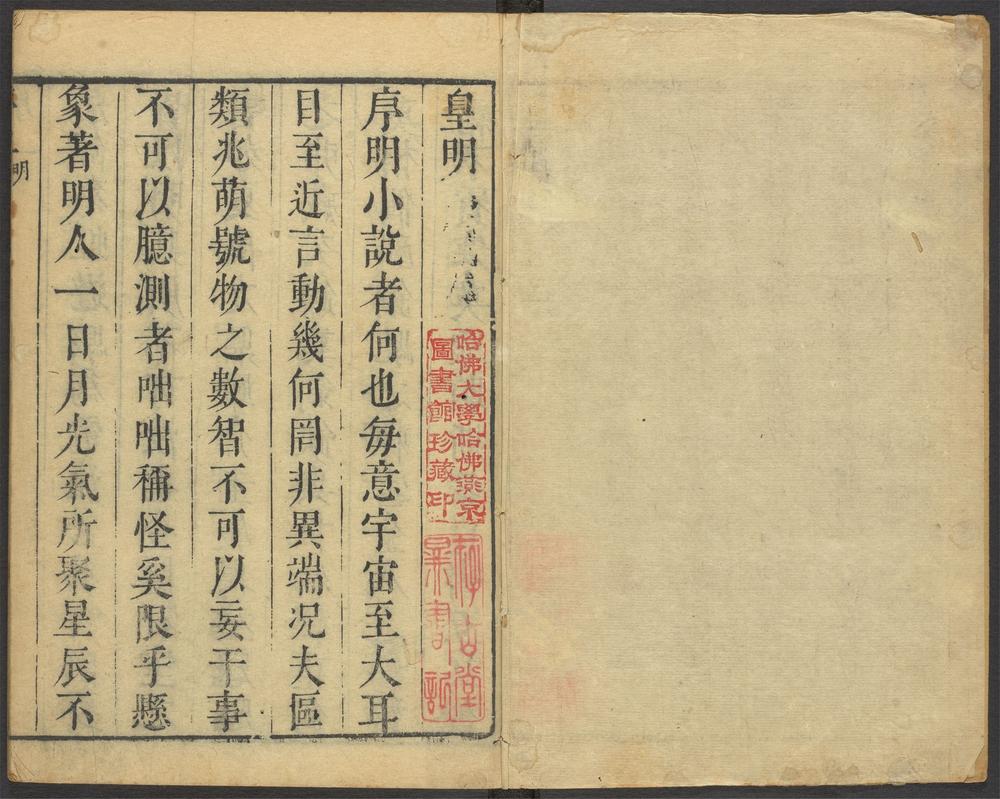 皇明
序明小說者何也每意宇宙至大耳
目至近言動幾何罔非異端况夫區
類兆萌號物之數智不可以妄干事
不可以臆測者咄咄稱怪奚限乎懸
象著明人一日月光氣所聚星辰不
明
哈佛大學哈佛燕京
圖書館珍藏印
存古堂